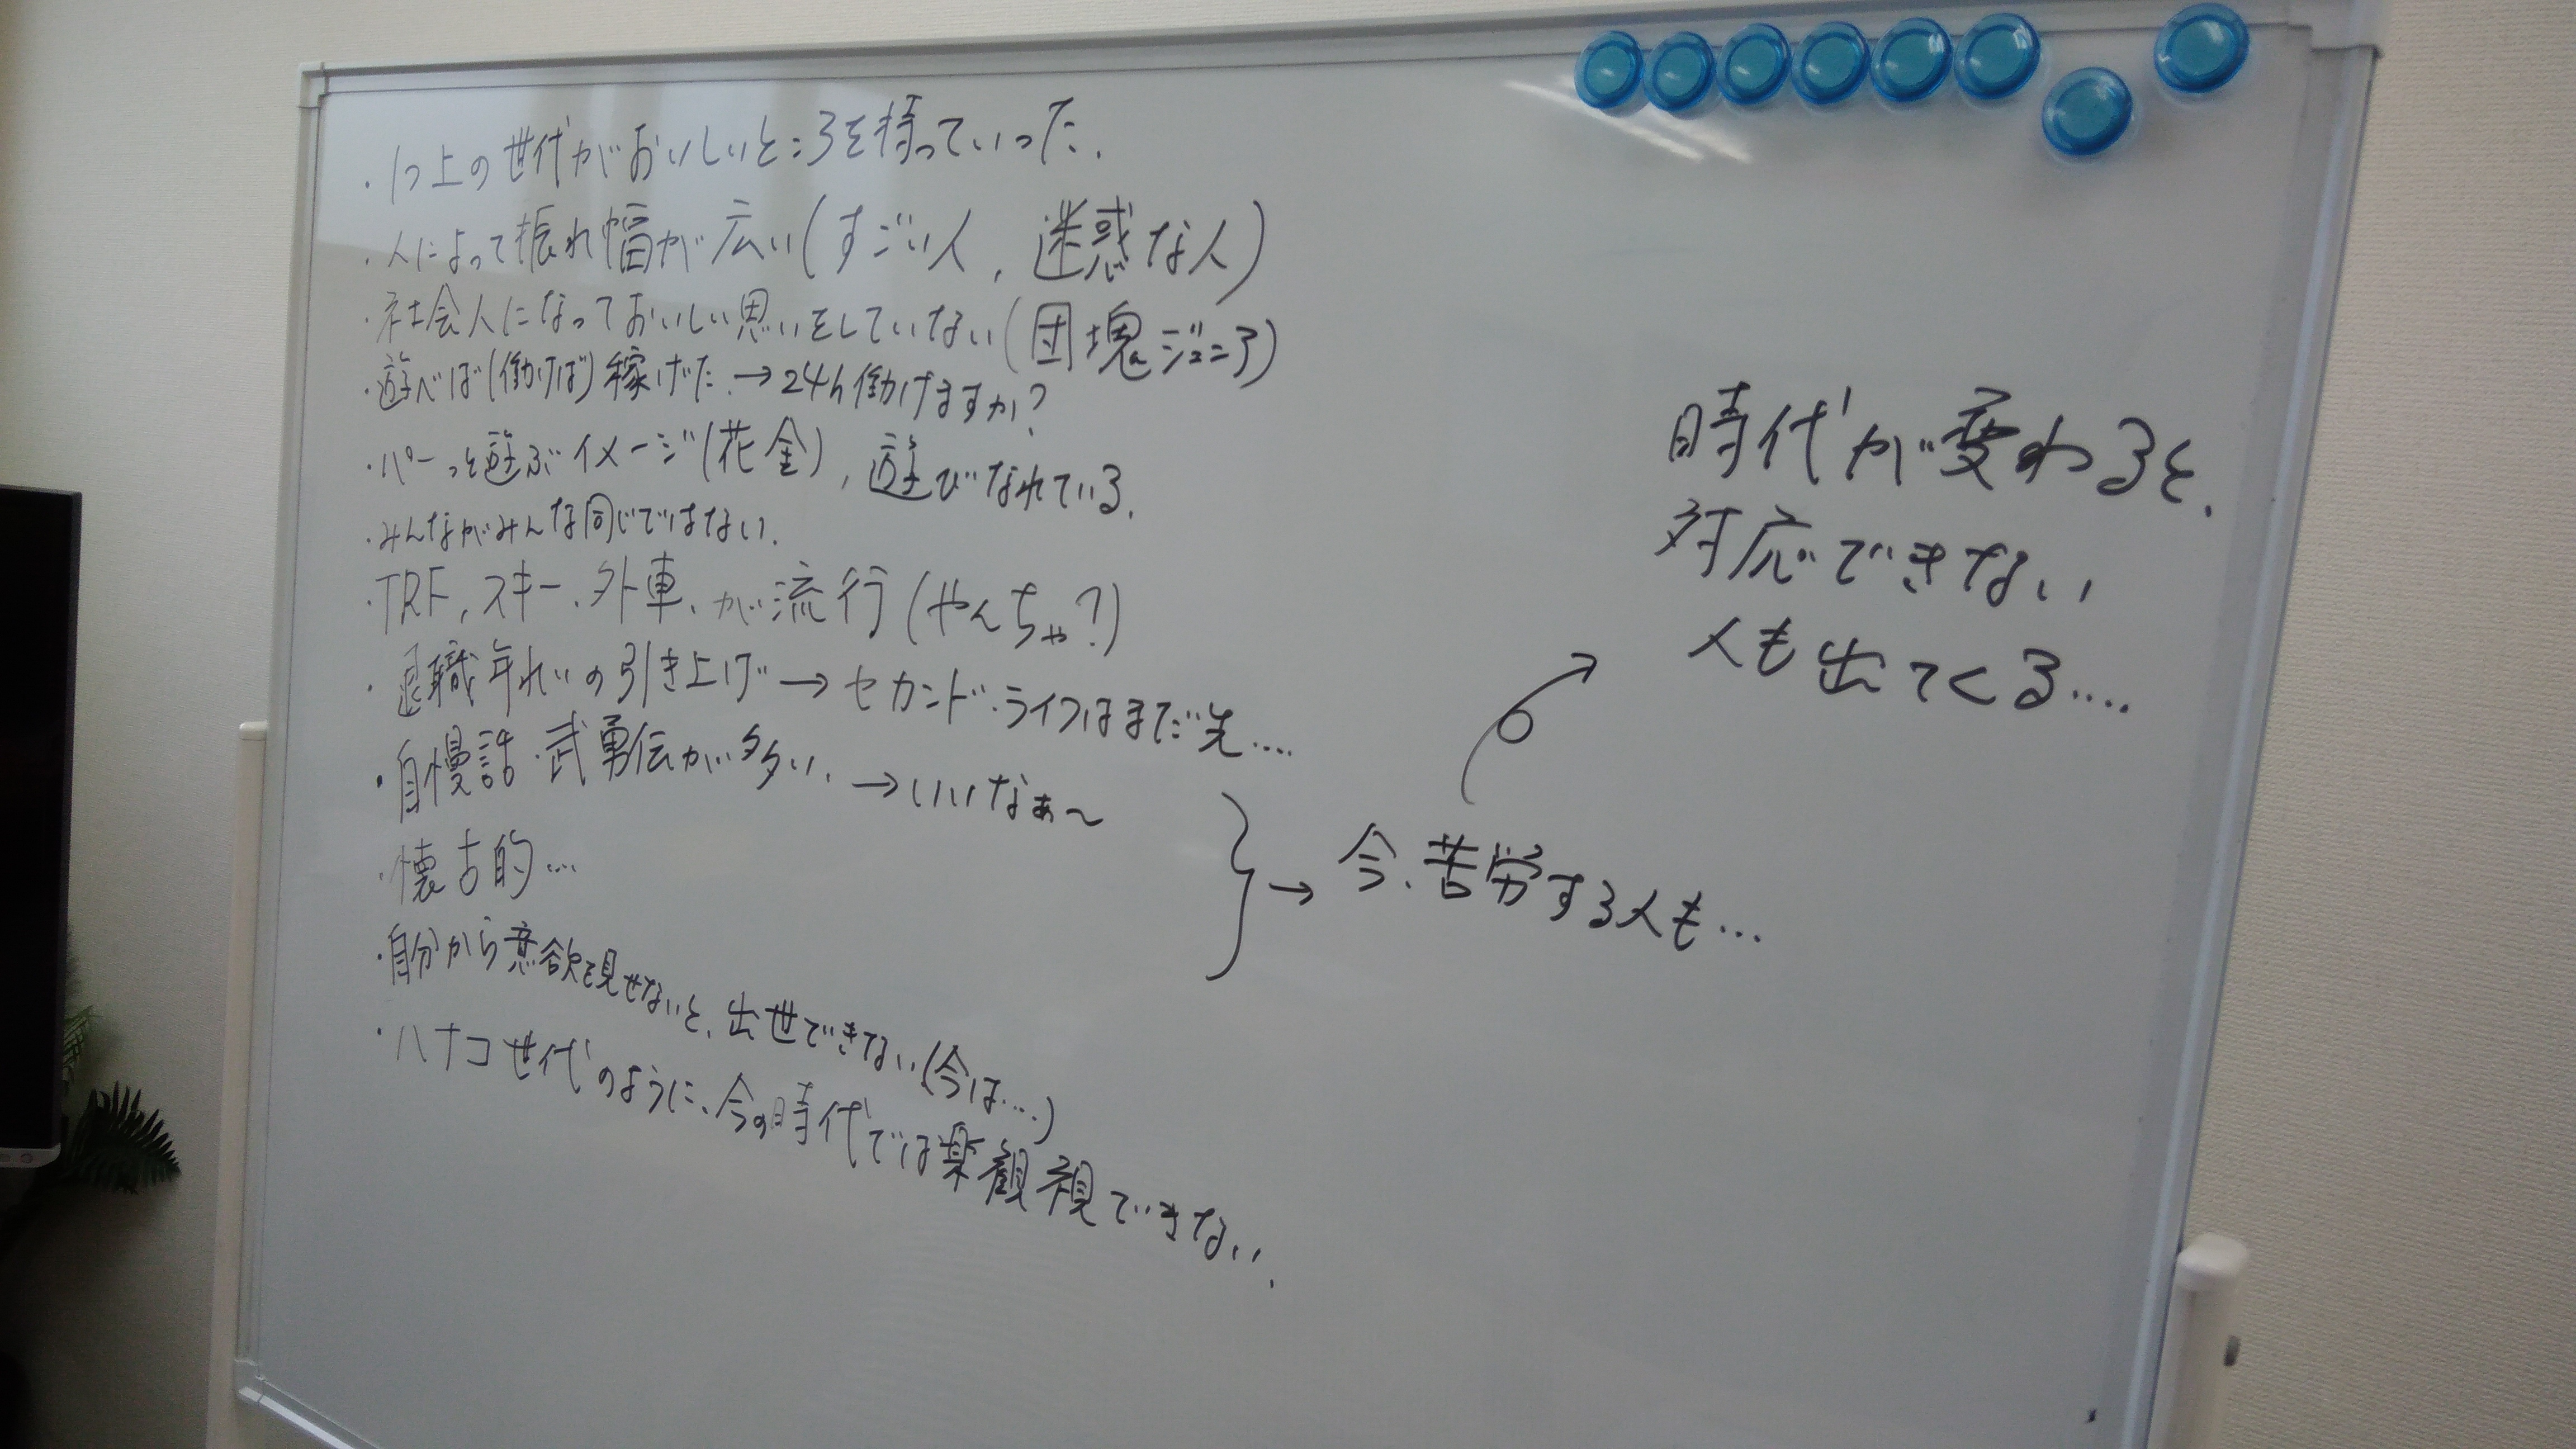 ・1つ上の世代がおいしいところを持っていった.
・人によって振れ幅が広い(すごい人, 迷惑な人)
・社会人になっておいしい思いをしていない(団塊ジュニア)
・遊べば(働けば)稼げた.→24h働けますか?
・パーっと遊ぶイメージ(花金), 遊びなれている.
・みんながみんな同じではない.
・TRF, スキー、外車、が流行(やんちゃ?)
・退職年れいの引き上げ→セカンド・ライフはまだ先....
・自慢話・武勇伝が多い、→いいなぁ〜
・懐古的...
・自分から意欲を見せないと、出世できない(今は...)
・ハナコ世代のように、今の時代では楽観視できない.
→今、苦労する人も...
時代が変わると、
対応できない
人も出てくる....